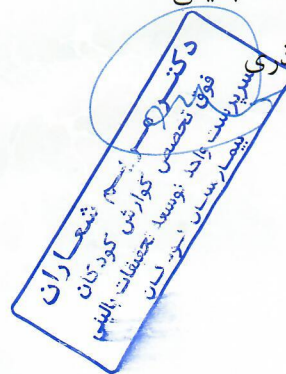 دکتر مریم شعاران
فوق تخصص گوارش کودکان
سرپرست واحد توسعه تحقیقات بالینی
بیمارستان کودکان